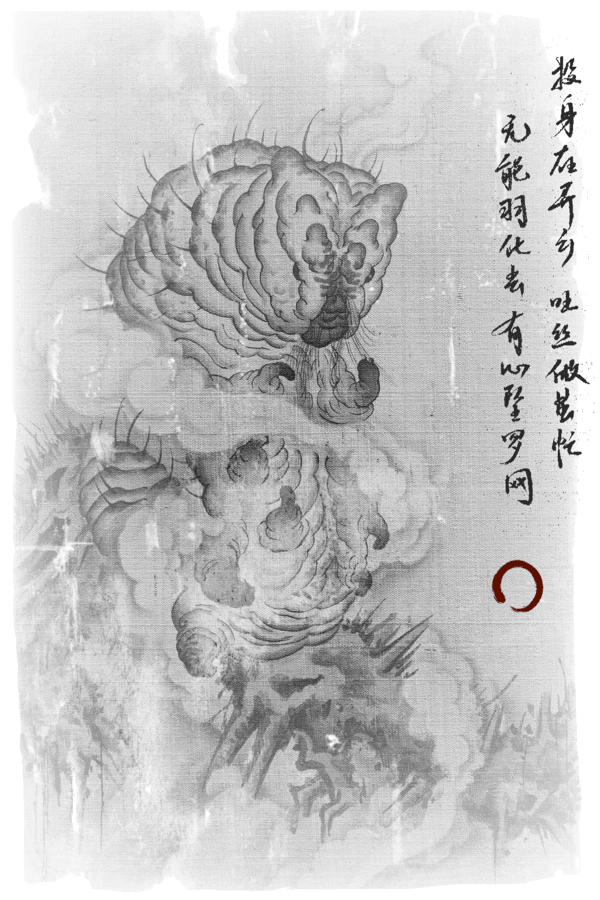 投身在异乡 吐丝做茧忙
无能羽化去 有心坠罗网